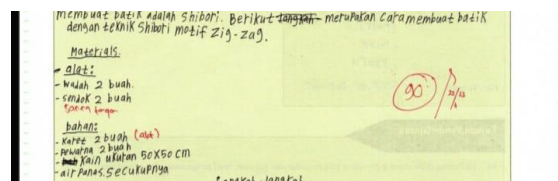 membuat batik adalah Shibori. Berikut langkah- merupakan cara membuat batik
dengan teknik Shibori motif zig-zag.
Materials.
- alat:
- wadah 2 buah.
- sendok 2 buah
Sarung tangan
bahan:
- Karet 2 buah (alat)
- Pewarna 2 buah
- Kain ukuran 50x50 cm
- air Panas. secukupnya
90